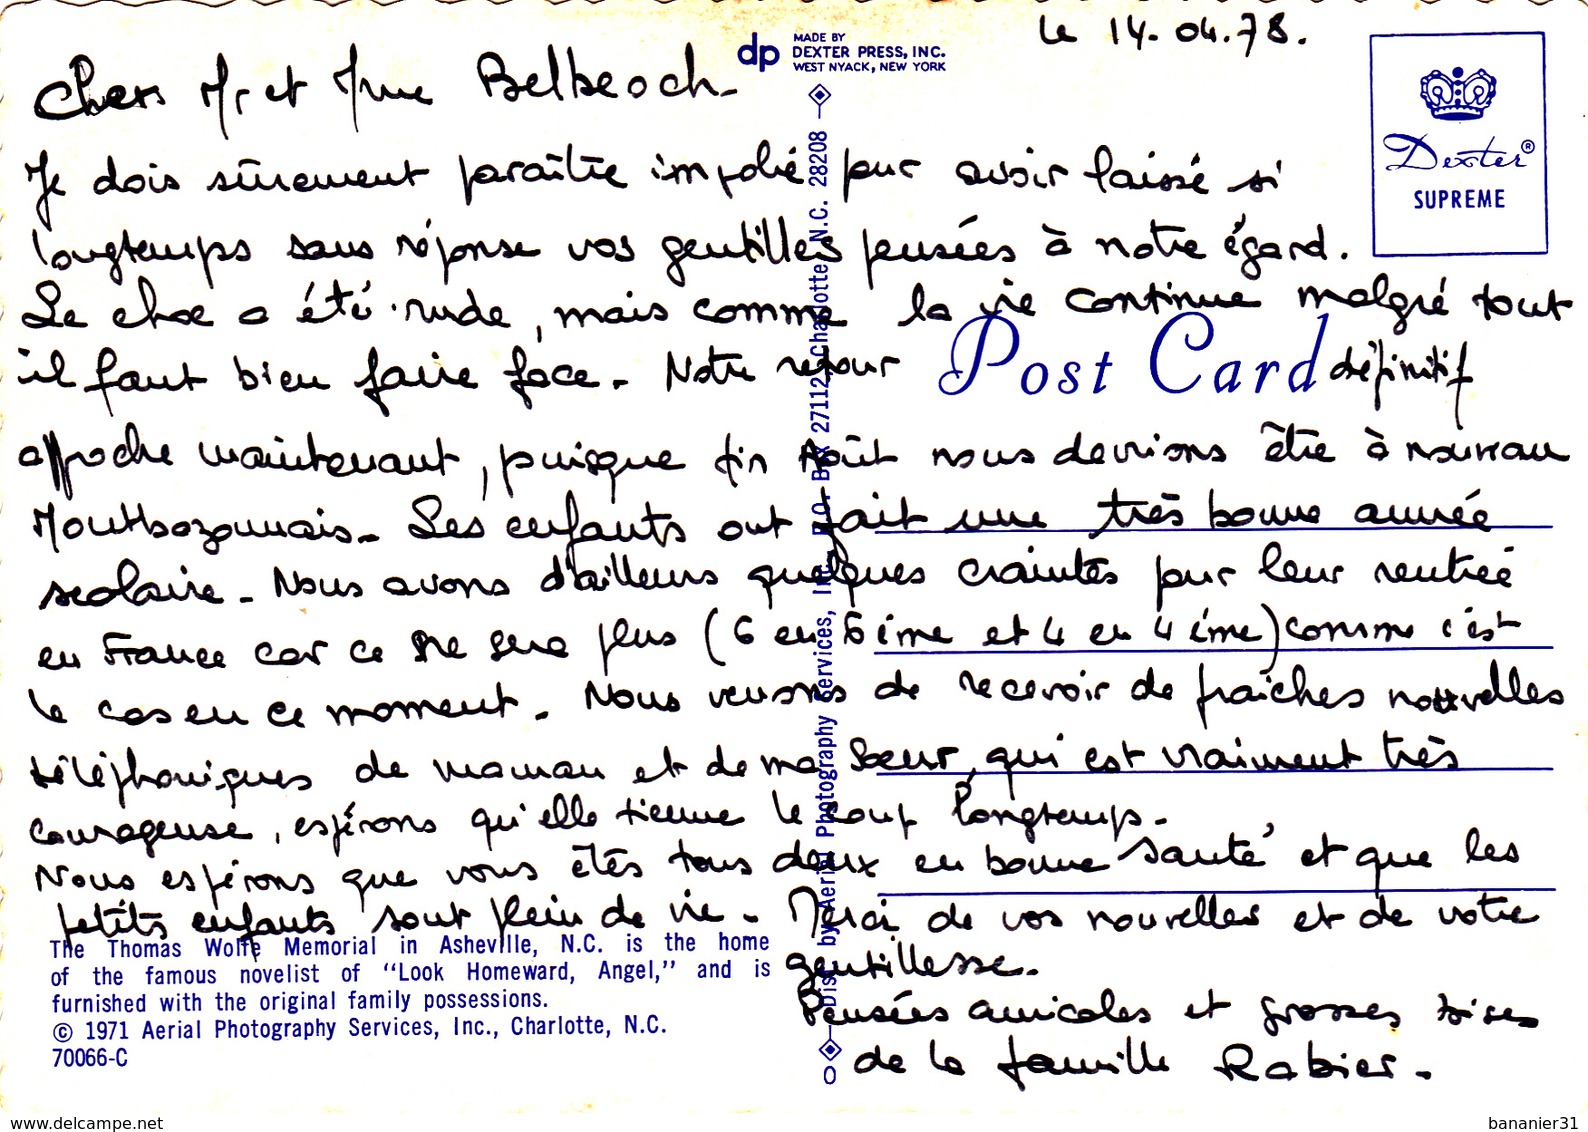 le 14.04.78.
dp MADE BY
DEXTER PRESS, INC.
WEST NYACK, NEW YORK
Dexter®
SUPREME
Chers Mr et Mme Belbeoch-
Je dois sûrement paraître impolie pour avoir laissé si
longtemps sans réponse vos gentilles pensées à notre égard.
Le choc a été rude, mais comme la vie continue malgré tout
il faut bien faire face. Notre retour définitif
Post Card
approche maintenant, puisque fin Août nous devrions être à nouveau
Montbozonnais. Les enfants ont fait une très bonne année
scolaire. Nous avons d'ailleurs quelques craintes pour leur rentrée
en France car ce ne sera plus (6 en 6ème et 4 en 4ème) comme c'est
le cas en ce moment. Nous venons de recevoir de fraîches nouvelles
téléphoniques de maman et de ma Sœur, qui est vraiment très
courageuse, espérons qu'elle tienne le coup longtemps.
Nous espérons que vous êtes tous deux en bonne santé et que les
petits enfants sont plein de vie. Merci de vos nouvelles et de votre
gentillesse.
Pensées amicales et grosses bises
de la famille Rabier.
The Thomas Wolfe Memorial in Asheville, N.C. is the home
of the famous novelist of "Look Homeward, Angel," and is
furnished with the original family possessions.
© 1971 Aerial Photography Services, Inc., Charlotte, N.C.
70066-C
Dist. by Aerial Photography Services, Inc., P.O. Box 27112, Charlotte, N.C. 28208
www.delcampe.net
bananier31